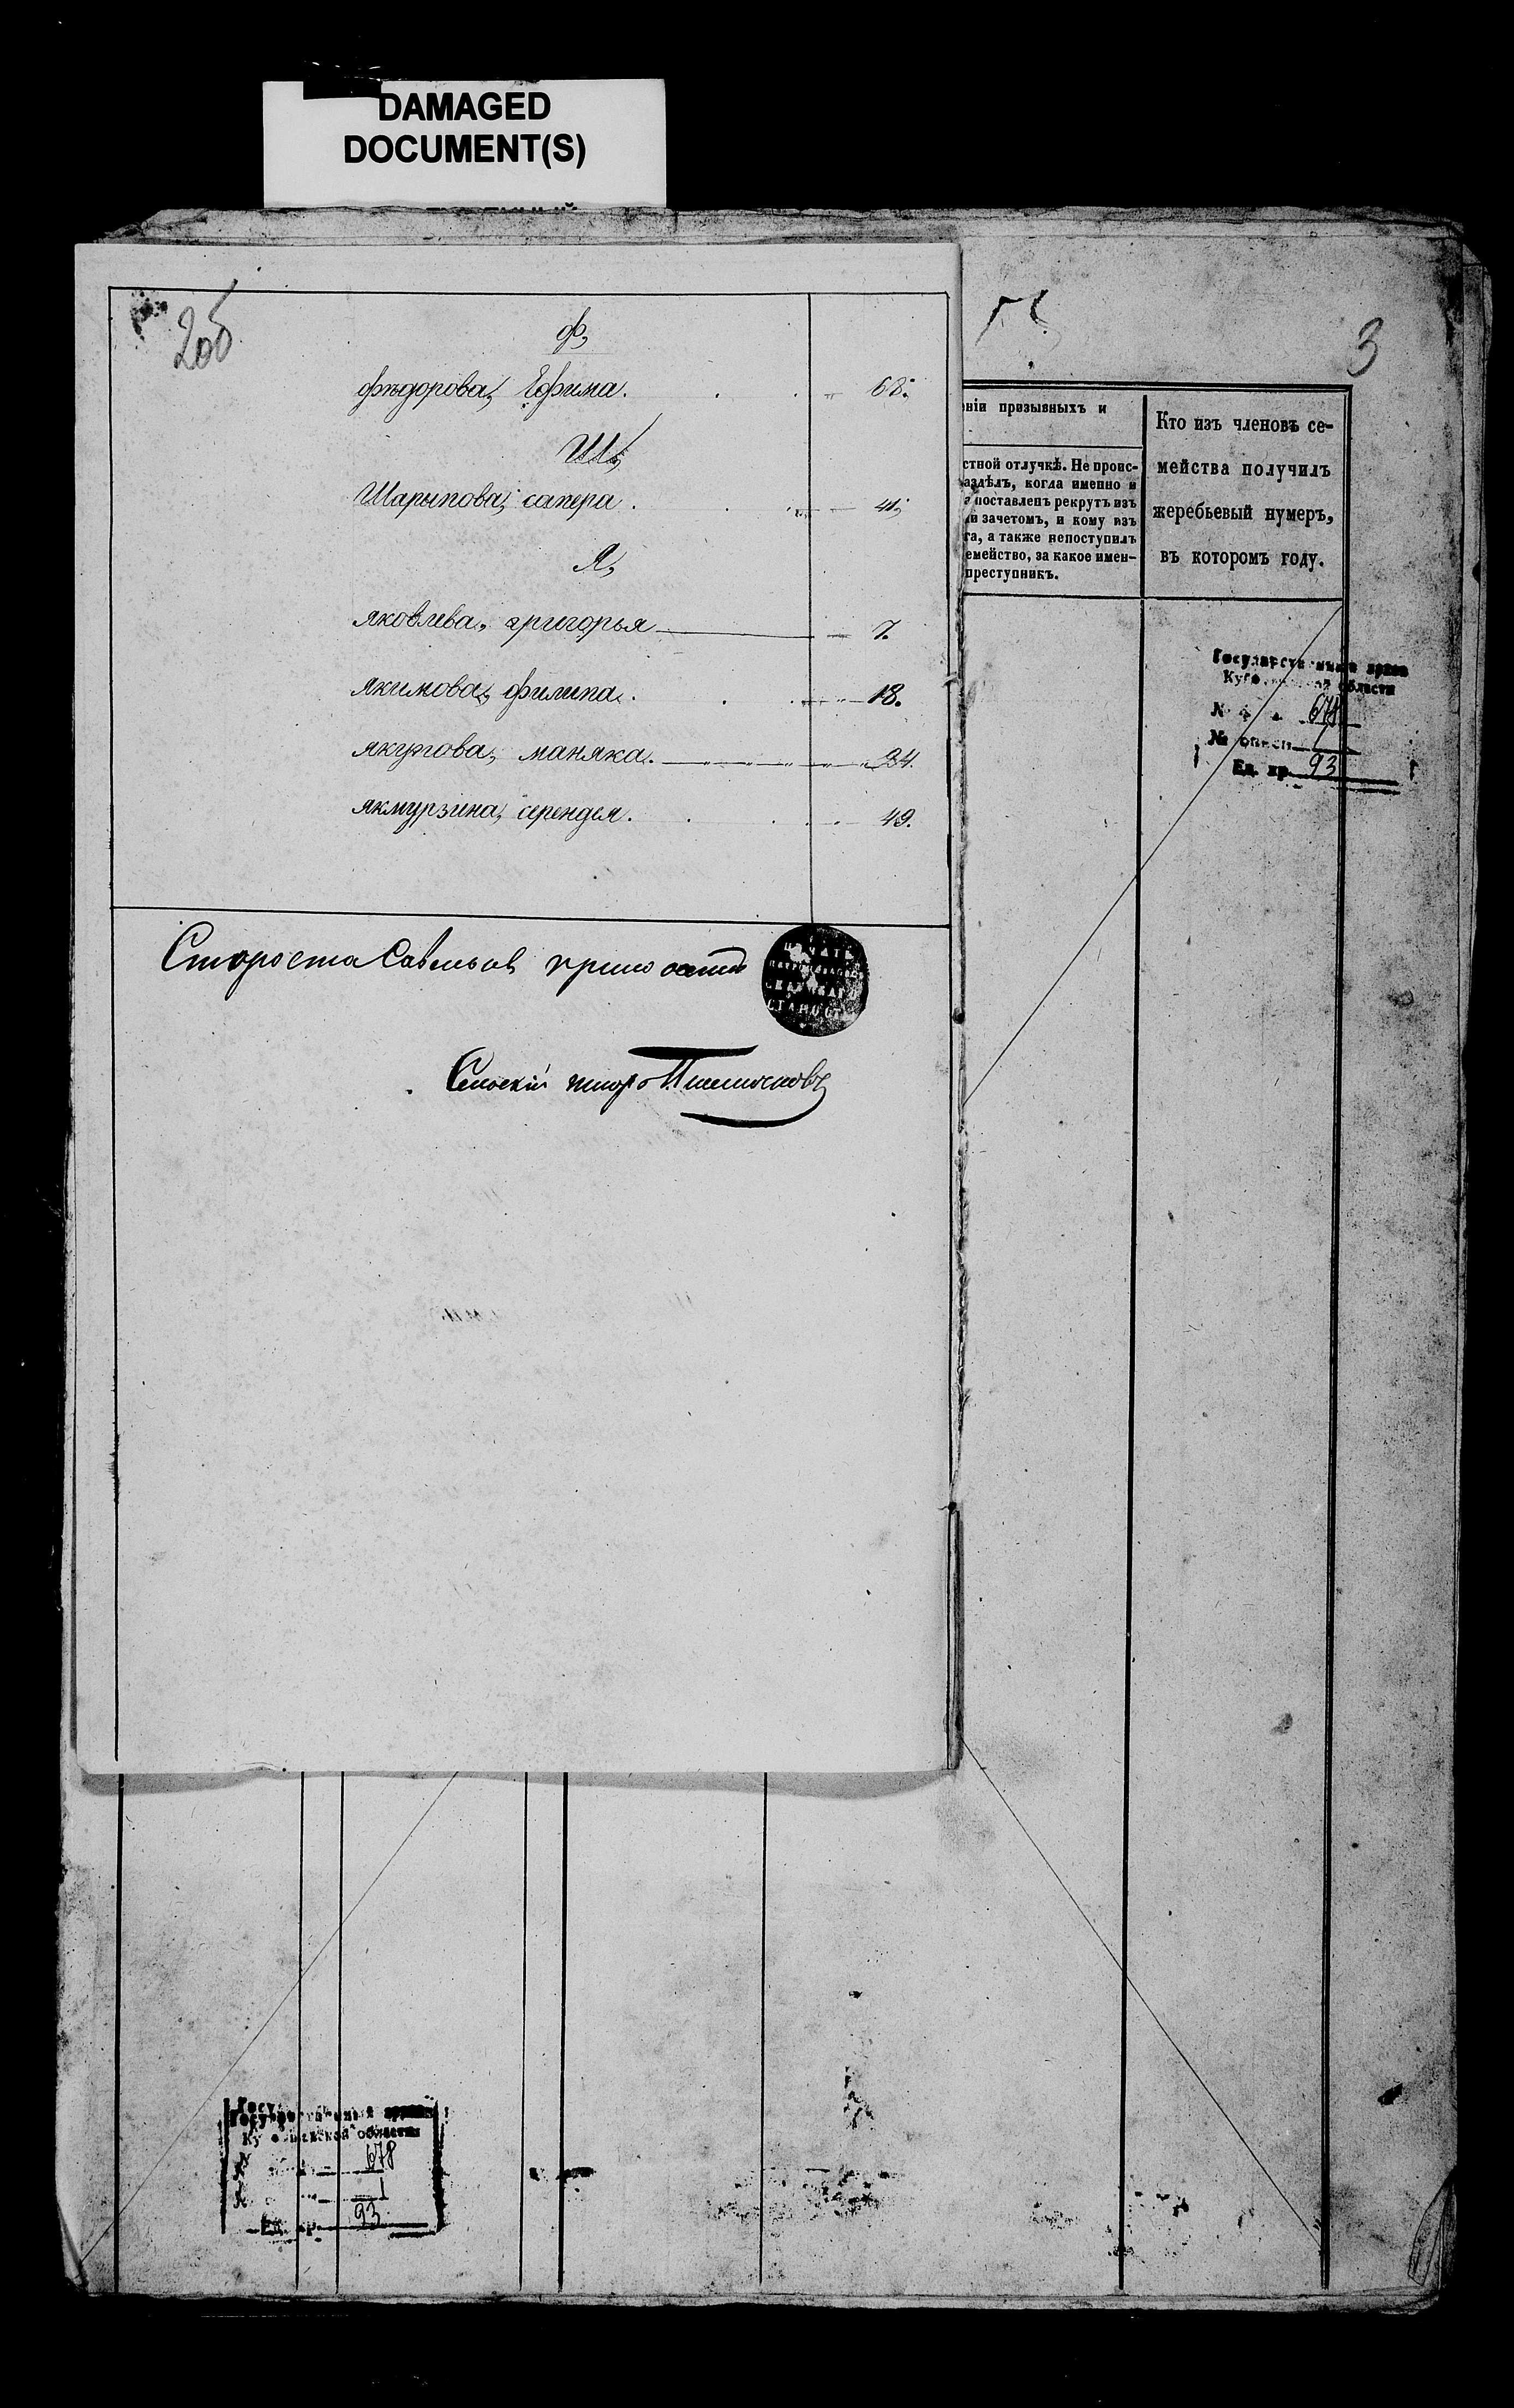 DAMAGED
DOCUMENT(S)
206
Ф,
Фѣдорова, Ефима. 68.
Ш,
Шарыпова, сапера. 41,
Я,
Яковлева, григорья 7.
Якимова, филипа. 18.
Якупова, маняка. 34.
Якмурзина, серендея. 49.
Староста Савельев приложил
ПЕЧАТЬ
СТАРОСТ
Сельскій писарь
3
ніи призывныхъ и
стной отлучкѣ. Не проис-
аздѣлъ, когда именно и
а поставленъ рекрутъ изъ
и зачетомъ, и кому изъ
га, а также непоступилъ
емейство, за какое имен-
преступникъ.
Кто изъ членовъ се-
мейства получилъ
жеребьевый нумеръ,
въ которомъ году.
Государственный архив
Куйбышевской области
№ 678
№ описи 1
Ед. хр. 93
Государственный архив
Куйбышевской области
678
1
Ед. хр. 93